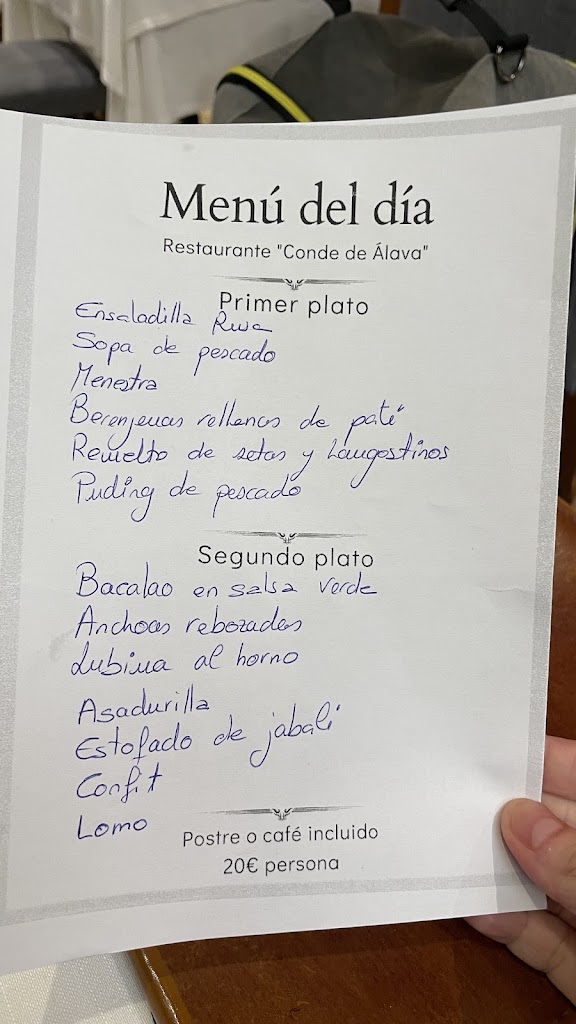 Menú del día
Restaurante "Conde de Álava"
Primer plato
Ensaladilla Rusa
Sopa de pescado
Menestra
Berenjenas rellenas de paté
Revuelto de setas y Langostinos
Puding de pescado
Segundo plato
Bacalao en salsa verde
Anchoas rebozadas
Lubina al horno
Asadurilla
Estofado de jabalí
Confit
Lomo
Postre o café incluido
20€ persona